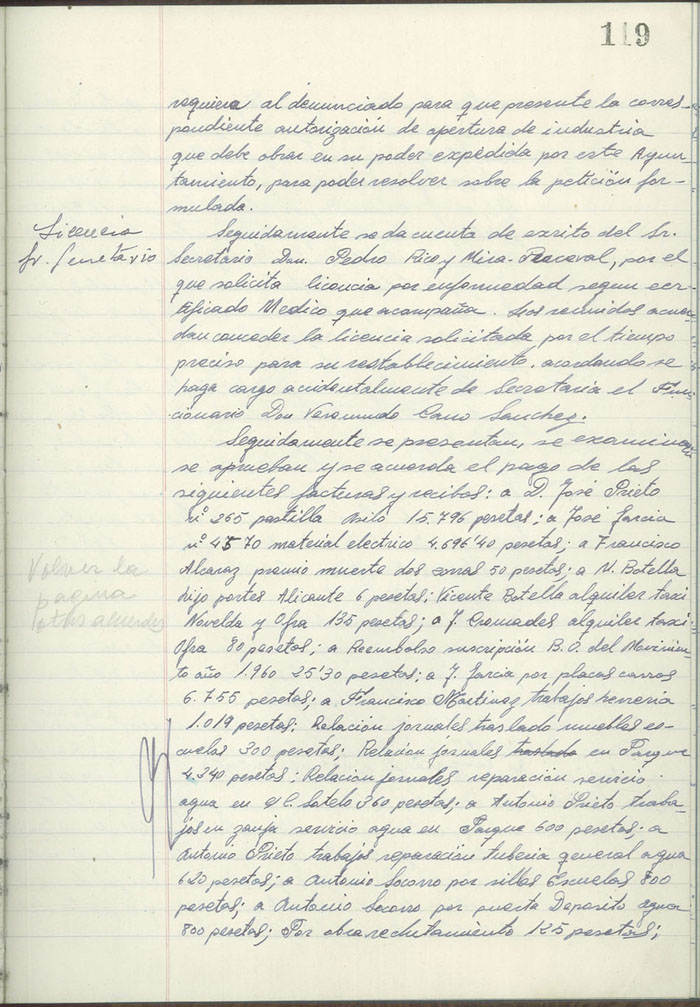 119
requiera al denunciado para que presente la corres-
pondiente autorización de apertura de industria
que debe obrar en su poder expedida por este Ayun-
tamiento, para poder resolver sobre la petición for-
mulada.
Licencia
Sr. Secretario
Seguidamente se da cuenta de escrito del Sr.
Secretario Don Pedro Rico y Mira-Perceval, por el
que solicita licencia por enfermedad segun cer-
tificado Medico que acompaña. Los reunidos acuer-
dan conceder la licencia solicitada, por el tiempo
preciso para su restablecimiento, acordando se
haga cargo accidentalmente de Secretaria el Fun-
cionario Don Veremundo Cano Sanchez.
Seguidamente se presentan, se examinan
se aprueban y se acuerda el pago de las
siguientes facturas y recibos: a D. José Prieto
nº 265 pastilla Asilo 15.796 pesetas; a José Garcia
nº 4570 material electrico 4.696'40 pesetas; a Francisco
Alcaraz premio muerte dos zorras 50 pesetas; a N. Botella
hijo portes Alicante 6 pesetas; Vicente Botella alquiler taxi
Novelda y Ofra 135 pesetas; a J. Cremades alquiler taxi
Ofra 80 pesetas; a Reembolso suscripción B.O. del Movimien-
to año 1.960 25'30 pesetas; a J. Garcia por placas carros
6.755 pesetas; a Francisco Martinez trabajos herreria
1.019 pesetas; Relacion jornales traslado muebles es-
cuelas 300 pesetas; Relacion jornales traslado en Parque
4.340 pesetas; Relacion jornales reparación servicio
agua en C. Sotelo 360 pesetas; a Antonio Prieto traba-
jos en zanja servicio agua en Parque 600 pesetas; a
Antonio Prieto trabajos reparación tuberia general agua
620 pesetas; a Antonio Socorro por sillas Escuelas 800
pesetas; a Antonio Socorro por puerta Deposito agua
800 pesetas; Por obra reclutamiento 125 pesetas;
Volver la
pagina
otros acuerdos